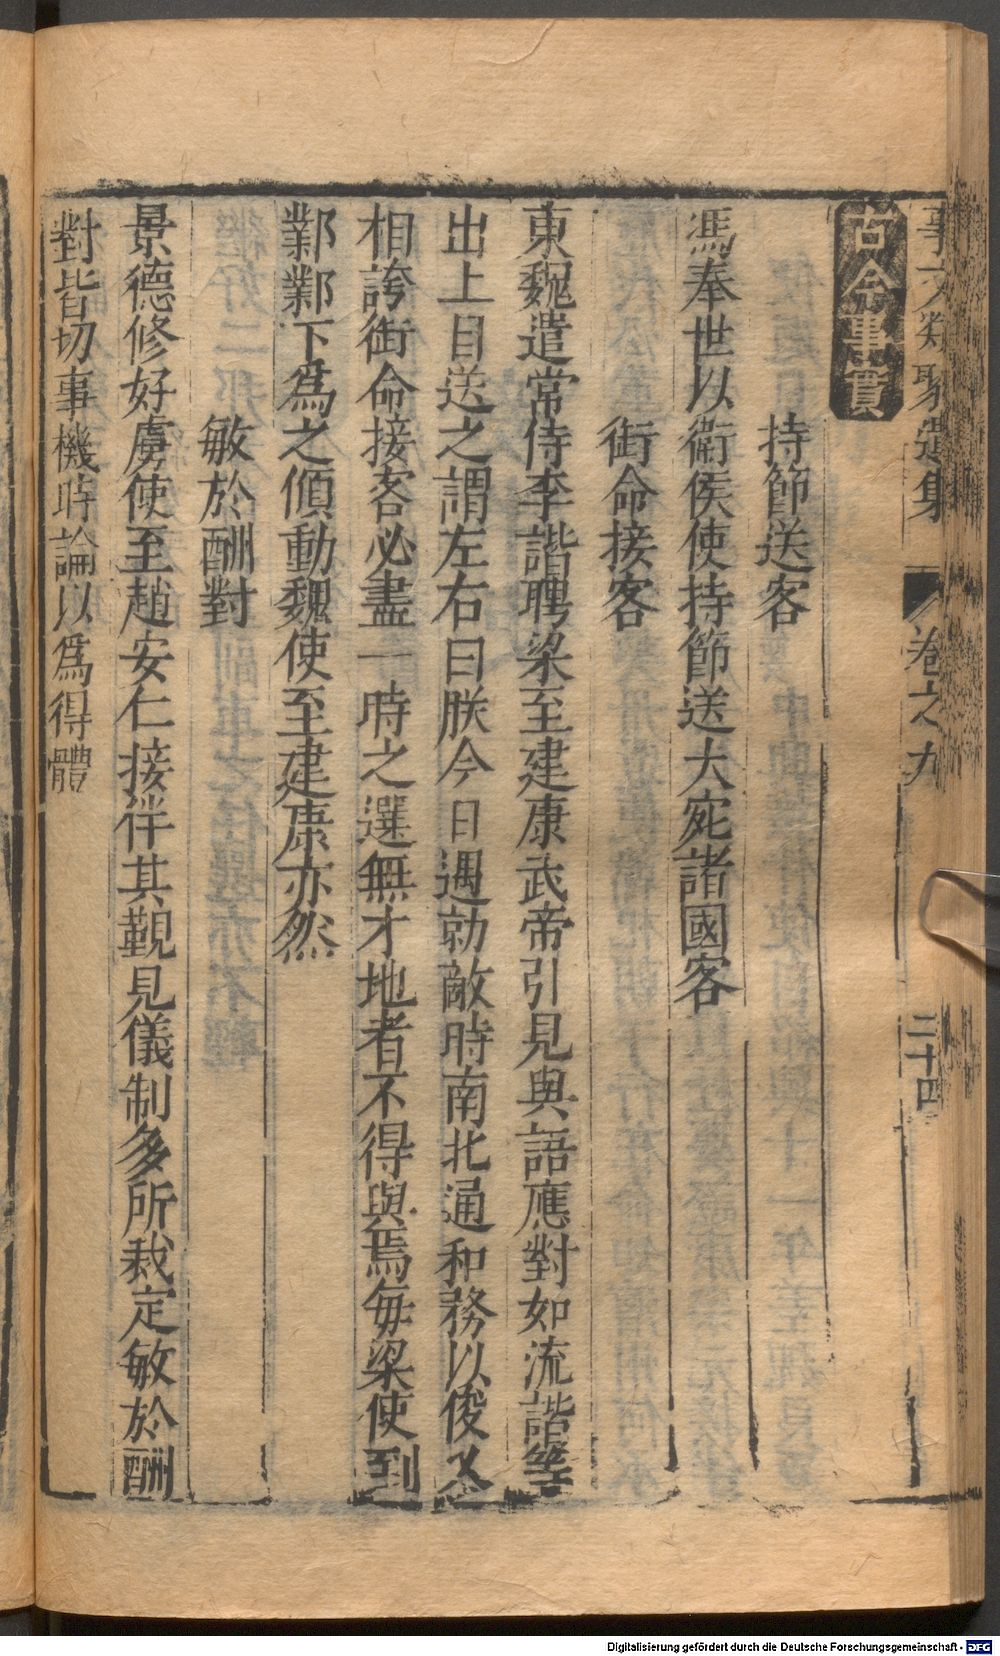 事文類聚遺集 卷之九 二十四
古今事實
持節送客
馮奉世以衞侯使持節送大宛諸國客
銜命接客
東魏遣常侍李諧聘梁至建康武帝引見與語應對如流諧等
出上目送之謂左右曰朕今日遇勍敵時南北通和務以俊乂
相誇銜命接客必盡一時之選無才地者不得與焉每梁使到
鄴鄴下爲之傾動魏使至建康亦然
敏於酬對
景德修好虜使至趙安仁接伴其覲見儀制多所裁定敏於酬
對皆切事機時論以爲得體
Digitalisierung gefördert durch die Deutsche Forschungsgemeinschaft - DFG